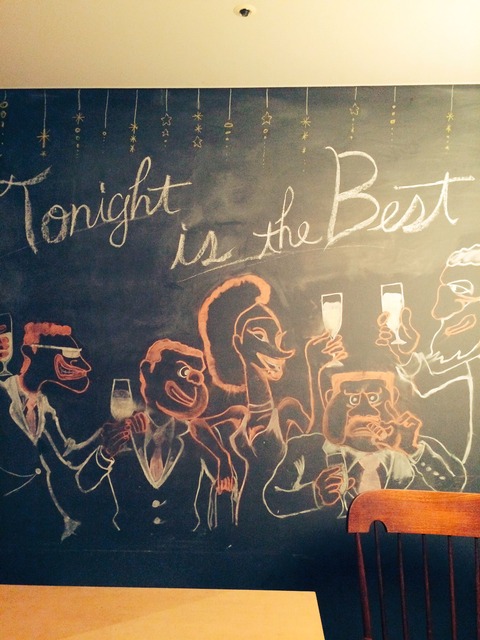 Tonight
is the Best